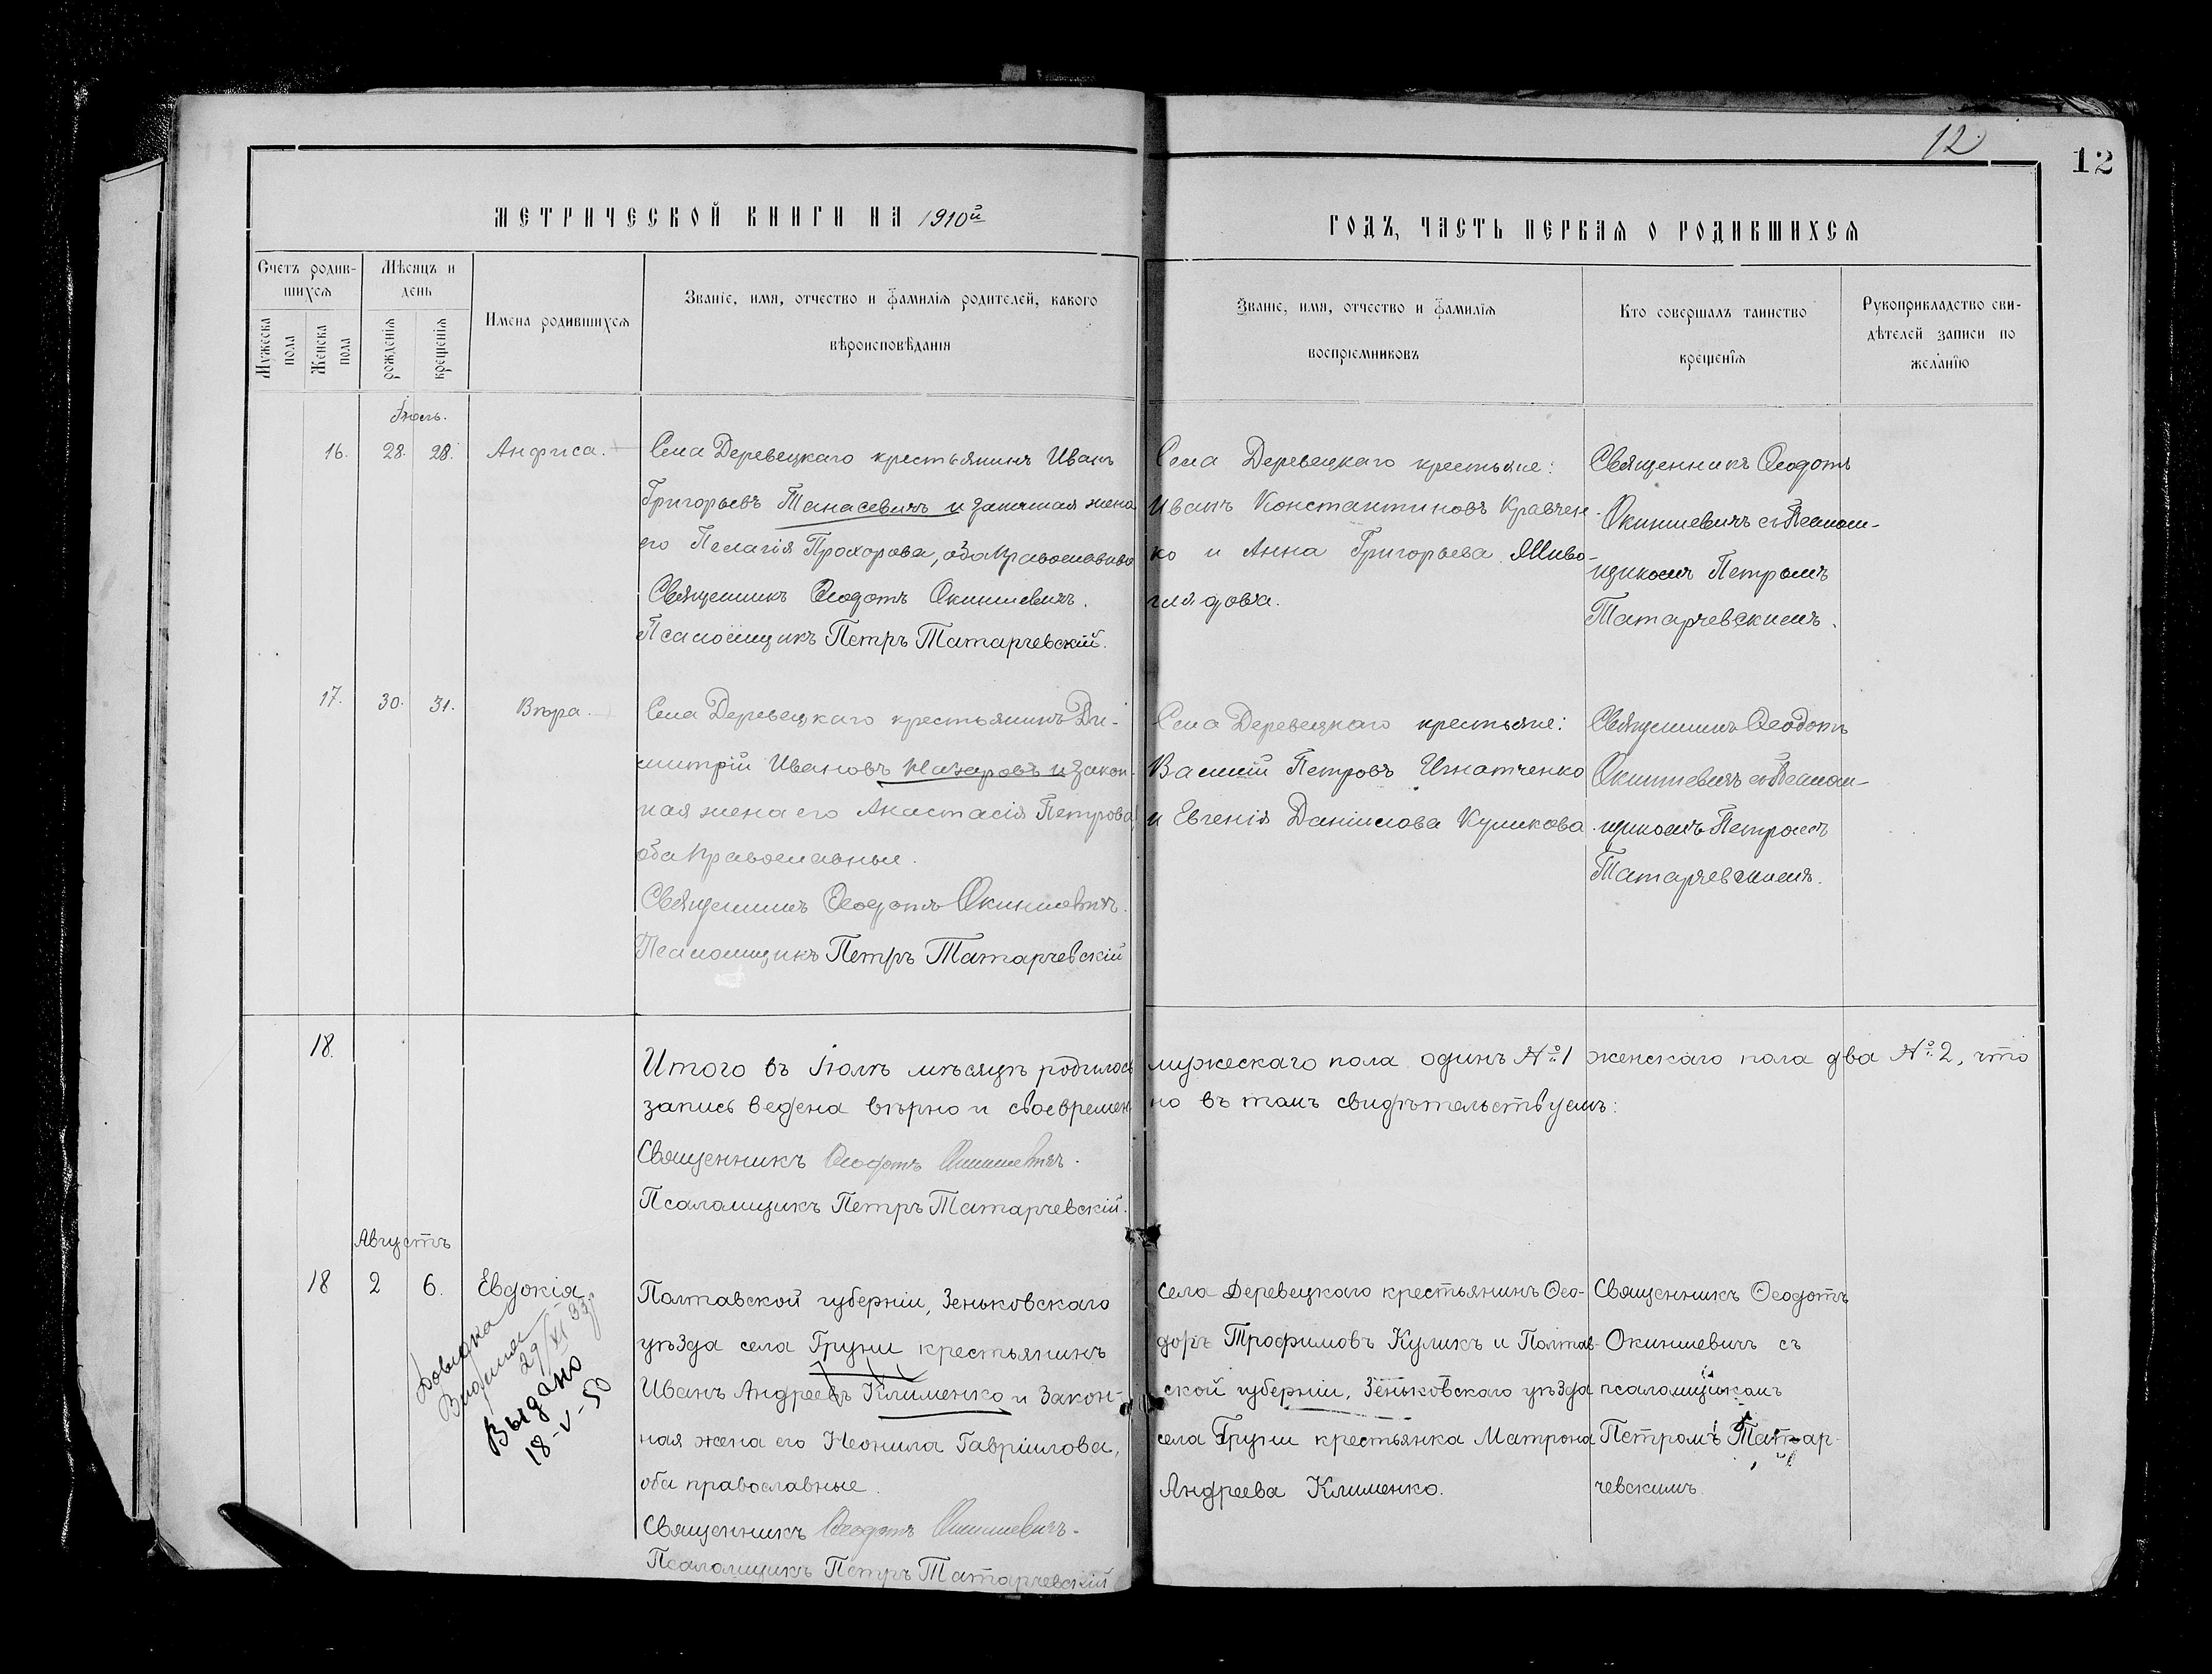 12
12
МЕТРИЧЕСКОЙ КНИГИ НА 1910й
ГОДЪ, ЧАСТЬ ПЕРВАЯ О РОДИВШИХСЯ
Счетъ родив-
шихся
Мѣсяцъ и
день
Мужеска
пола
Женска
пола
рожденія
крещенія
Имена родившихся
Званіе, имя, отчество и фамилія родителей, какого
вѣроисповѣданія
Званіе, имя, отчество и фамилія
воспріемниковъ
Кто совершалъ таинство
крещенія
Рукоприкладство сви-
дѣтелей записи по
желанію
Іюль.
16. 28. 28. Анфиса.
Села Деревецкаго крестьянинъ Иванъ
Григорьевъ Танасевичъ и законная жена
его Пелагія Прохорова, оба православные
Священникъ Ѳеодотъ Окиншевичъ.
Псаломщикъ Петръ Татарчевскій.
Села Деревецкаго крестьяне:
Иванъ Константиновъ Кравчен-
ко и Анна Григорьева
Священникъ Ѳеодотъ
Окиншевичъ съ Псалом-
щикомъ Петромъ
Татарчевскимъ.
17. 30. 31. Вѣра.
Села Деревецкаго крестьянинъ Ди-
митрій Ивановъ Назаровъ и закон-
ная жена его Анастасія Петрова
оба православные.
Священникъ Ѳеодотъ Окиншевичъ.
Псаломщикъ Петръ Татарчевскій
Села Деревецкаго крестьяне:
Василій Петровъ Игнатченко
и Евгенія Даніилова Куликова.
Священникъ Ѳеодотъ
Окиншевичъ съ Псалом-
щикомъ Петромъ
Татарчевскимъ.
18.
Итого въ Іюлѣ мѣсяцѣ родилось мужескаго пола одинъ № 1 женскаго пола два № 2, что
запись ведена вѣрно и своевремен но въ томъ свидѣтельствуемъ:
Священникъ Ѳеодотъ Окиншевичъ.
Псаломщикъ Петръ Татарчевскій.
Августъ
18 2 6. Евдокія
Довидка
Видана
29/XI 33
Выдано
18-V-50
Полтавской губерніи, Зеньковскаго
уѣзда села Груни крестьянинъ
Иванъ Андреевъ Клименко и закон-
ная жена его Неонила Гавріилова,
оба православные.
Священникъ Ѳеодотъ Окиншевичъ.
Псаломщикъ Петръ Татарчевскій
Села Деревецкаго крестьянинъ Ѳео-
доръ Трофимовъ Куликъ и Полтав-
ской губерніи, Зеньковскаго уѣзда
села Груни крестьянка Матрона
Андреева Клименко.
Священникъ Ѳеодотъ
Окиншевичъ съ
псаломщикомъ
Петромъ Татар-
чевскимъ.